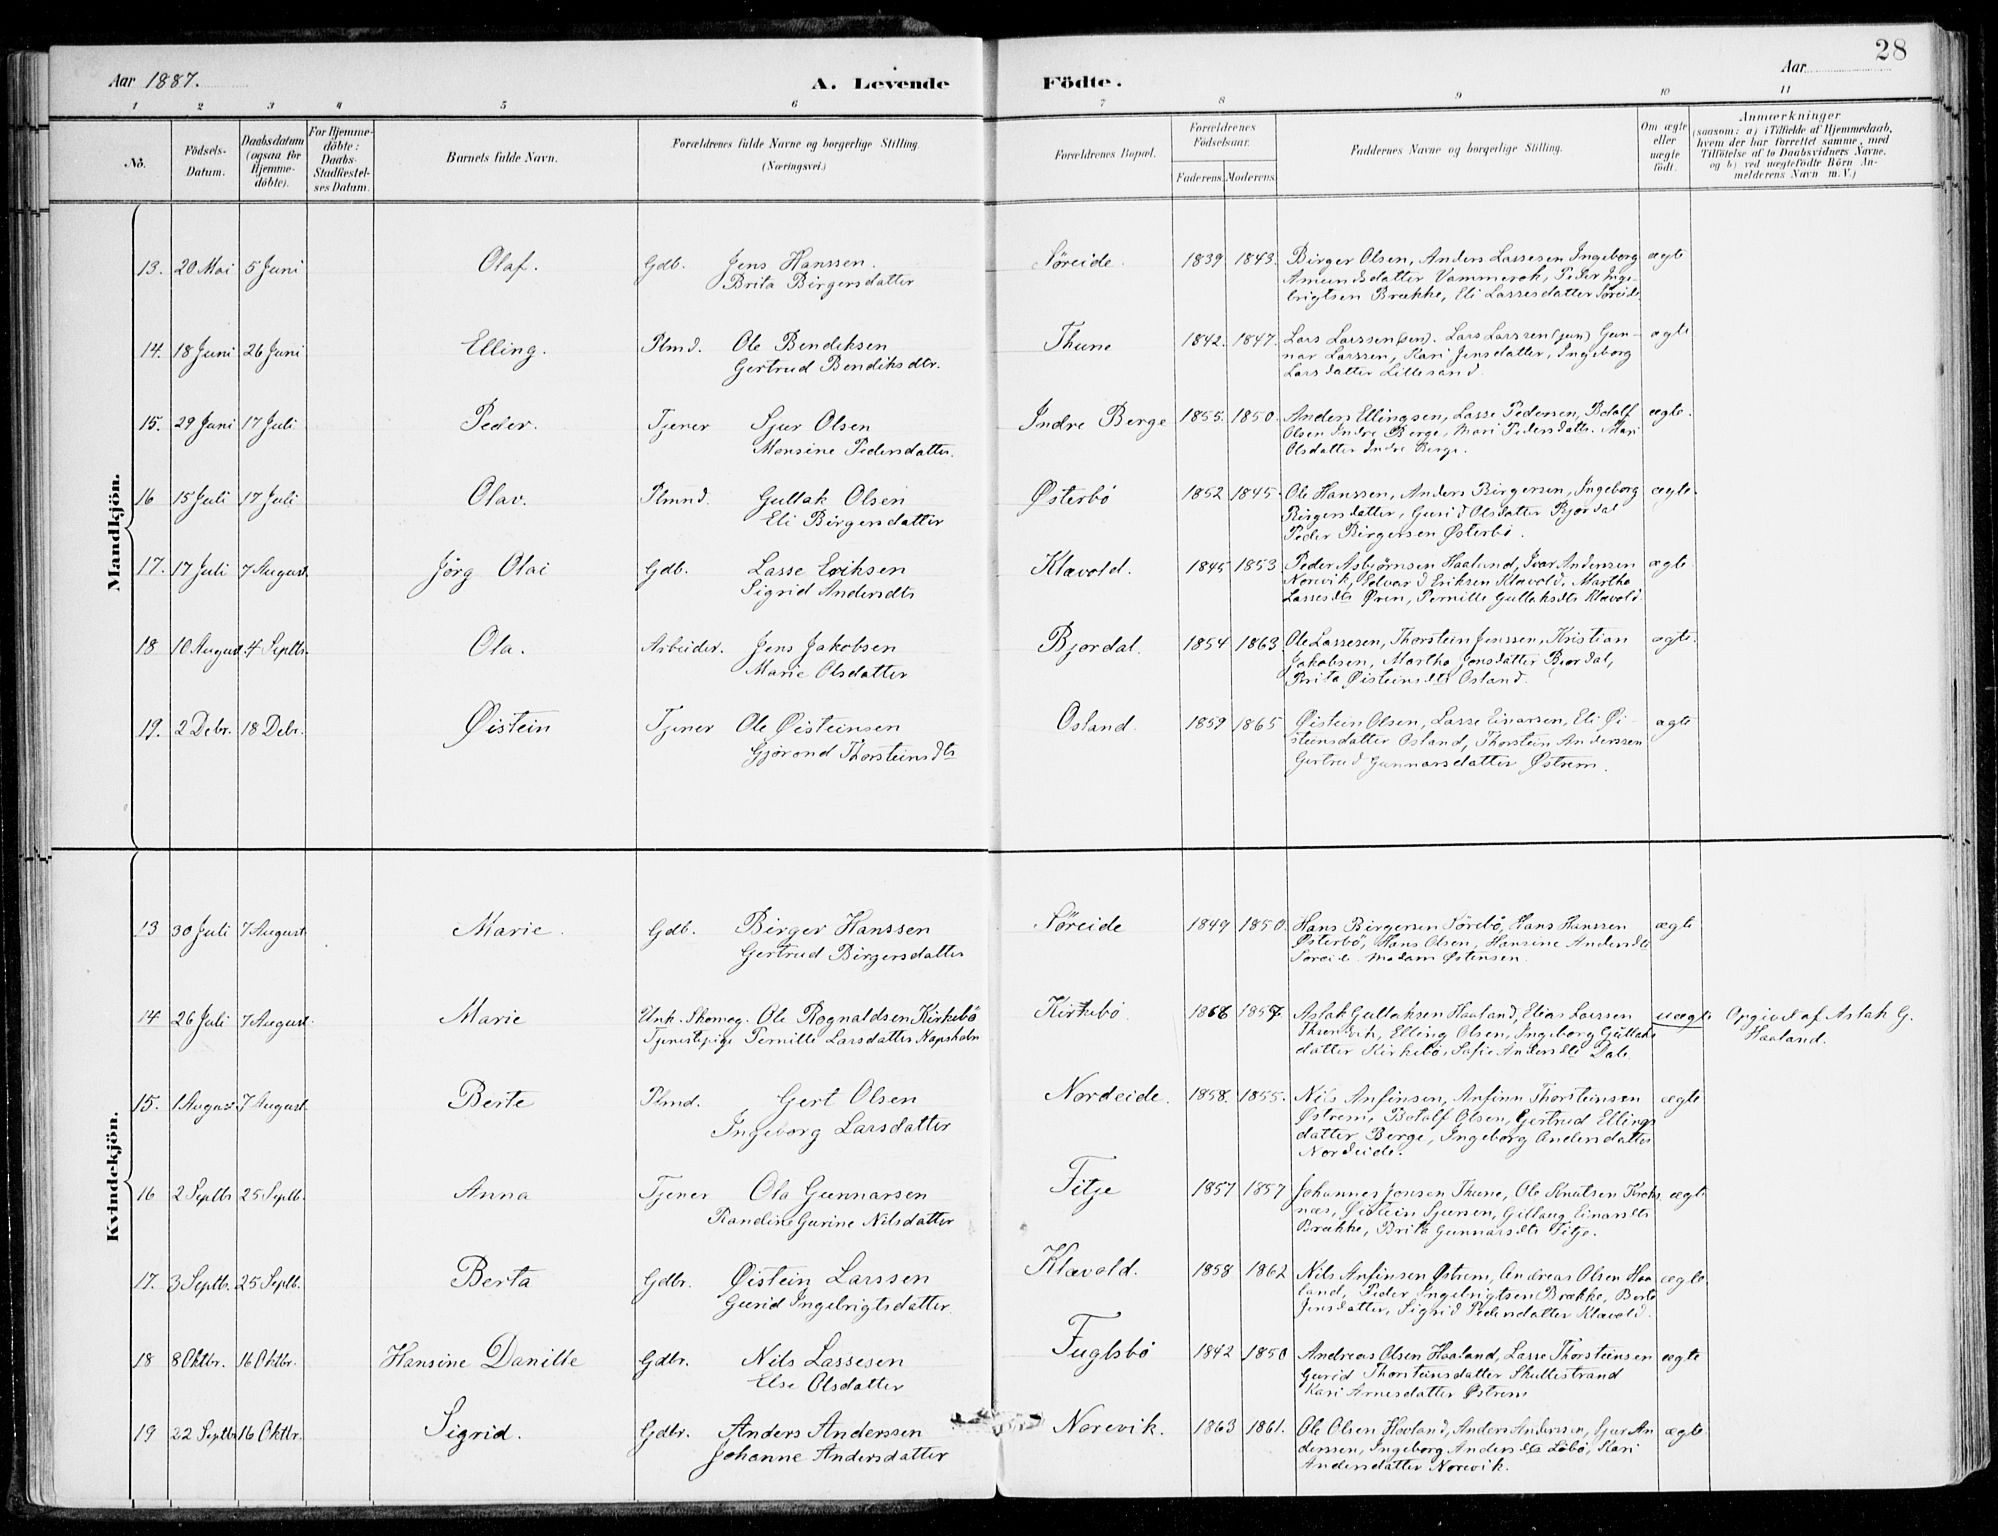 28
Aar 1887.
A. Levende Födte.
Aar
1 2 3 4 5 6 7 8 9 10 11
No.
Födsels-Datum.
Daabsdatum (ogsaa for Hjemmedöbte).
For Hjemmedöbte: Daabs-Stadfæstelses Datum.
Barnets fulde Navn.
Forældrenes fulde Navne og borgerlige Stilling. (Næringsvei.)
Forældrenes Bopæl.
Forældrenes Födselsaar.
Faderens. Moderens.
Faddernes Navne og borgerlige Stilling.
Om ægte eller uægte födt.
Anmærkninger
(saasom: a) i Tilfælde af Hjemmedaab, hvem der har forrettet samme, med Tilföielse af to Daabsvidners Navne, og b) ved uægtefödte Börn Anmelderens Navn m. V.)
Mandkjön.
13. 20 Mai 5 Juni Olaf. Gdb. Jens Hanssen. Søreide. 1839. 1843. Birger Olsen, Anders Lassesen Ingeborg ægte
Brita Birgersdatter Amundsdatter Vammerok, Peder Inge-
brigtsen Brække, Eli Lassesdatter Søreide
14. 18 Juni 26 Juni Elling. Plmd. Ole Bendiksen Thune 1842. 1847. Lars Larssen (sen). Lars Larssen (jun) Gun- ægte
Gertrud Bendiksdtr. nar Larssen, Kari Jensdatter, Ingeborg
Larsdatter Lillesand.
15. 29 Juni 17 Juli Peder. Tjener Sjur Olsen Indre Berge 1855. 1850. Anders Ellingsen, Lasse Pedersen, Botolf ægte.
Monsine Pedersdatter. Olsen Indre Berge, Mari Pedersdattr. Mari
Olsdatter Indre Berge.
16 15 Juli 17 Juli Olav. Plmnd. Gullak Olsen Østerbø 1852 1845. Ole Hanssen, Anders Birgersen, Ingeborg ægte.
Eli Birgersdatter Birgersdatter, Gurid Olsdatter Bjordal
Peder Birgersen Østerbø.
17. 17 Juli 7 August. Jørg Olai Gdb. Lasse Eriksen Klævold. 1845 1853 Peder Asbjørnsen Haaland, Ivar Andersen ægte.
Sigrid Andersdtr Norevik, Edvard Eriksen Klævold. Martha
Lassesdtr Øren, Pernille Gullaksdtr Klævold.
18 10 August. 4 Septb. Ola. Arbeider. Jens Jakobsen Bjordal. 1854 1863 Ole Lassesen, Thorstein Jenssen, Kristian ægte.
Marie Olsdatter Jakobsen, Martha Jonsdatter Bjordal,
Brita Øisteinsdtr Osland.
19. 2 Debr. 18 Debr. Øistein Tjener Ole Øisteinsen Osland. 1859 1865 Øistein Olsen, Lasse Einarsen, Eli Øi- ægte
Gjørond Thorsteinsdtr steinsdatter Osland, Thorstein Anderssen
Gertrud Gunnarsdatter Østrem.
Kvindekjön.
13 30 Juli 7 August. Marie. Gdb. Birger Hanssen Søreide 1849 1850. Hans Birgersen Sørebø, Hans Hanssen ægte
Gertrud Birgersdatter Østerbø, Hans Olsen, Hansine Andersdtr
Søreide. Madam Østensen.
14 26 Juli 7 August. Marie Unk. Skomag. Ole Rognaldsen Kirkebø Kirkebø. 1857 Aslak Gullaksen Haaland, Elias Larssen uægte Opgivet af Aslak G.
Tjenestepige Pernille Larsdatter Elling Olsen, Ingeborg Gullaks Haaland.
datter Kirkebø, Sofie Andersdtr Dale
15. 1 August. 7 August. Berte Plmd. Gert Olsen Nordeide. 1858. 1855. Nils Anfinsen, Anfinn Thorsteinsen ægte
Ingeborg Larsdatter Østrem, Botolf Olsen, Gertrud Ellings
datter Berge, Ingeborg Andersdatter
Nordeide.
16 2 Septbr 25 Septb. Anna Tjener Ola Gunnarsen Titje 1857 1857 Johannes Jonsen Thune, Ole Knutsen ægte
Randine Gurine Nilsdatter næs, Øistein Sjursen, Gillaug Einarsdtr
Brække, Brita Gunnarsdtr Titje.
17. 3 Septb. 25 Septb. Berta Gdbr. Øistein Larssen Klævold. 1858 1862 Nils Anfinsen Østrem, Andreas Olsen Haa ægte
Gurid Ingebrigtsdatter. land, Peder Ingebrigtsen Brække, Berte
Jensdatter, Sigrid Pedersdatter Klævold.
18 8 Oktbr. 16 Oktbr. Hansine Danille Gdbr. Nils Lassesen Fuglsbø 1842 1850 Andreas Olsen Haaland, Lasse Thorsteinsen ægte
Else Olsdatter Gurid Thorsteinsdatter Skullestrand
Kari Arnesdatter Østrem
19 22 Septbr 16 Oktbr. Sigrid. Gdbr. Anders Anderssen Norevik. 1863 1861. Ole Olsen Haaland, Anders Anderssen, Sjur An ægte
Johanne Andersdatter derssen, Ingeborg Andersdtr Libø, Kari
Andersdatter Norevik.